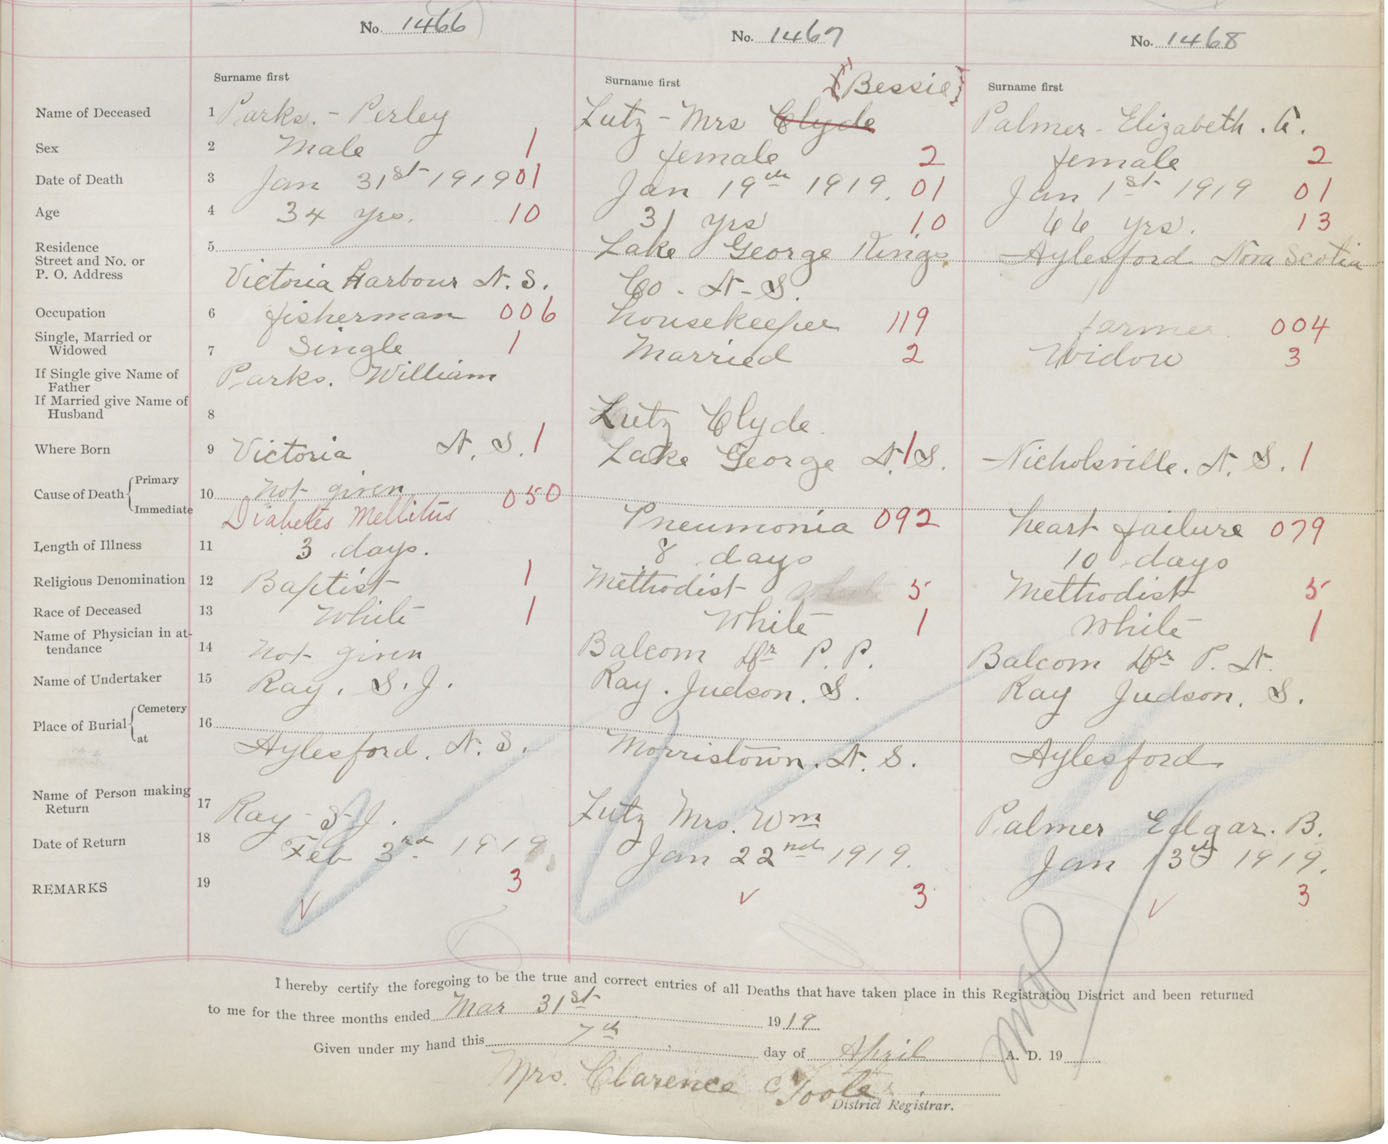 No. 1466
No. 1467
No. 1468
Surname first
Surname first {"Bessie}
Surname first
Name of Deceased 1 Parks. - Perley
Lutz - Mrs Clyde
Palmer - Elizabeth. A.
Sex 2 Male 1 female 2 female 2
Date of Death 3 Jan 31st 1919 01 Jan 19th 1919. 01 Jan 1st 1919 01
Age 4 34 yrs. 10 31 yrs 10 66 yrs. 13
Residence 5 Lake George Kings Aylesford Nova Scotia
Street and No. or
P. O. Address Victoria Harbour N. S. Co - N - S.
Occupation 6 fisherman 006 housekeeper 119 farmer 004
Single, Married or
Widowed 7 Single 1 Married 2 Widow 3
If Single give Name of
Father Parks. William
If Married give Name of
Husband 8 Lutz Clyde.
Where Born 9 Victoria N. S. 1 Lake George N. S. 1 Nicholsville. N. S. 1
Cause of Death { Primary 10 Not given
Immediate Diabetes Mellitus 050 Pneumonia 092 heart failure 079
Length of Illness 11 3 days. 8 days 10 days
Religious Denomination 12 Baptist 1 Methodist 5 Methodist 5
Race of Deceased 13 White 1 White 1 White 1
Name of Physician in at-
tendance 14 Not given Balcom Dr P. P. Balcom Dr P. N.
Name of Undertaker 15 Ray. S. J. Ray. Judson. S. Ray Judson. S.
Place of Burial { Cemetery 16
at Aylesford. N. S. Morristown. N. S. Aylesford
Name of Person making
Return 17 Ray - S. J. Lutz Mrs. Wm Palmer Edgar. B.
Date of Return 18 Feb 3rd 1919 Jan 22nd 1919. Jan 13th 1919.
REMARKS 19 3 3 3
I hereby certify the foregoing to be the true and correct entries of all Deaths that have taken place in this Registration District and been returned
to me for the three months ended Mar 31st 1919
Given under my hand this 7th day of April A. D. 19
Mrs. Clarence O'Toole
District Registrar.